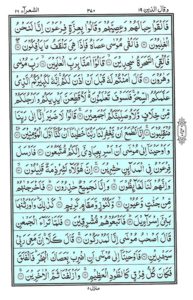 وقال الذین ١٩ ٣٨٠ الشعرآء ٢٦
فَاَلْقَوْا حِبَالَهُمْ وَعِصِیَّهُمْ وَقَالُوْا بِعِزَّةِ فِرْعَوْنَ اِنَّا لَنَحْنُ
الْغٰلِبُوْنَ ۝ فَاَلْقٰى مُوْسٰى عَصَاهُ فَاِذَا هِىَ تَلْقَفُ مَا یَاْفِكُوْنَ ۝
فَاُلْقِىَ السَّحَرَةُ سٰجِدِیْنَ ۝ قَالُوْۤا اٰمَنَّا بِرَبِّ الْعٰلَمِیْنَ ۝ رَبِّ مُوْسٰى
وَهٰرُوْنَ ۝ قَالَ اٰمَنْتُمْ لَهٗ قَبْلَ اَنْ اٰذَنَ لَكُمْ اِنَّهٗ لَكَبِیْرُكُمُ الَّذِىْ
عَلَّمَكُمُ السِّحْرَ فَلَسَوْفَ تَعْلَمُوْنَ لَاُقَطِّعَنَّ اَیْدِیَكُمْ وَاَرْجُلَكُمْ
مِّنْ خِلَافٍ وَّلَاُوصَلِّبَنَّكُمْ اَجْمَعِیْنَ ۝ قَالُوْا لَا ضَیْرَ اِنَّاۤ اِلٰى رَبِّنَا
مُنْقَلِبُوْنَ ۝ اِنَّا نَطْمَعُ اَنْ یَّغْفِرَ لَنَا رَبُّنَا خَطٰیٰنَاۤ اَنْ كُنَّاۤ اَوَّلَ
الْمُؤْمِنِیْنَ ۝ وَاَوْحَیْنَاۤ اِلٰى مُوْسٰۤى اَنْ اَسْرِ بِعِبَادِىْۤ اِنَّكُمْ مُّتَّبَعُوْنَ ۝ فَاَرْسَلَ
فِرْعَوْنُ فِى الْمَدَآئِنِ حٰشِرِیْنَ ۝ اِنَّ هٰۤؤُلَآءِ لَشِرْذِمَةٌ قَلِیْلُوْنَ ۝
وَاِنَّهُمْ لَنَا لَغَآئِظُوْنَ ۝ وَاِنَّا لَجَمِیْعٌ حٰذِرُوْنَ ۝ فَاَخْرَجْنٰهُمْ
مِّنْ جَنّٰتٍ وَّعُیُوْنٍ ۝ وَّكُنُوْزٍ وَّمَقَامٍ كَرِیْمٍ ۝ كَذٰلِكَ وَاَوْرَثْنٰهَا
بَنِىْۤ اِسْرَآءِیْلَ ۝ فَاَتْبَعُوْهُمْ مُّشْرِقِیْنَ ۝ فَلَمَّا تَرَآءَ الْجَمْعٰنِ
قَالَ اَصْحٰبُ مُوْسٰۤى اِنَّا لَمُدْرَكُوْنَ ۝ قَالَ كَلَّا اِنَّ مَعِىَ رَبِّىْ
سَیَهْدِیْنِ ۝ فَاَوْحَیْنَاۤ اِلٰى مُوْسٰۤى اَنِ اضْرِبْ بِّعَصَاكَ الْبَحْرَ فَانْفَلَقَ
فَكَانَ كُلُّ فِرْقٍ كَالطَّوْدِ الْعَظِیْمِ ۝ وَاَزْلَفْنَا ثَمَّ الْاٰخَرِیْنَ ۝
منزل ٥